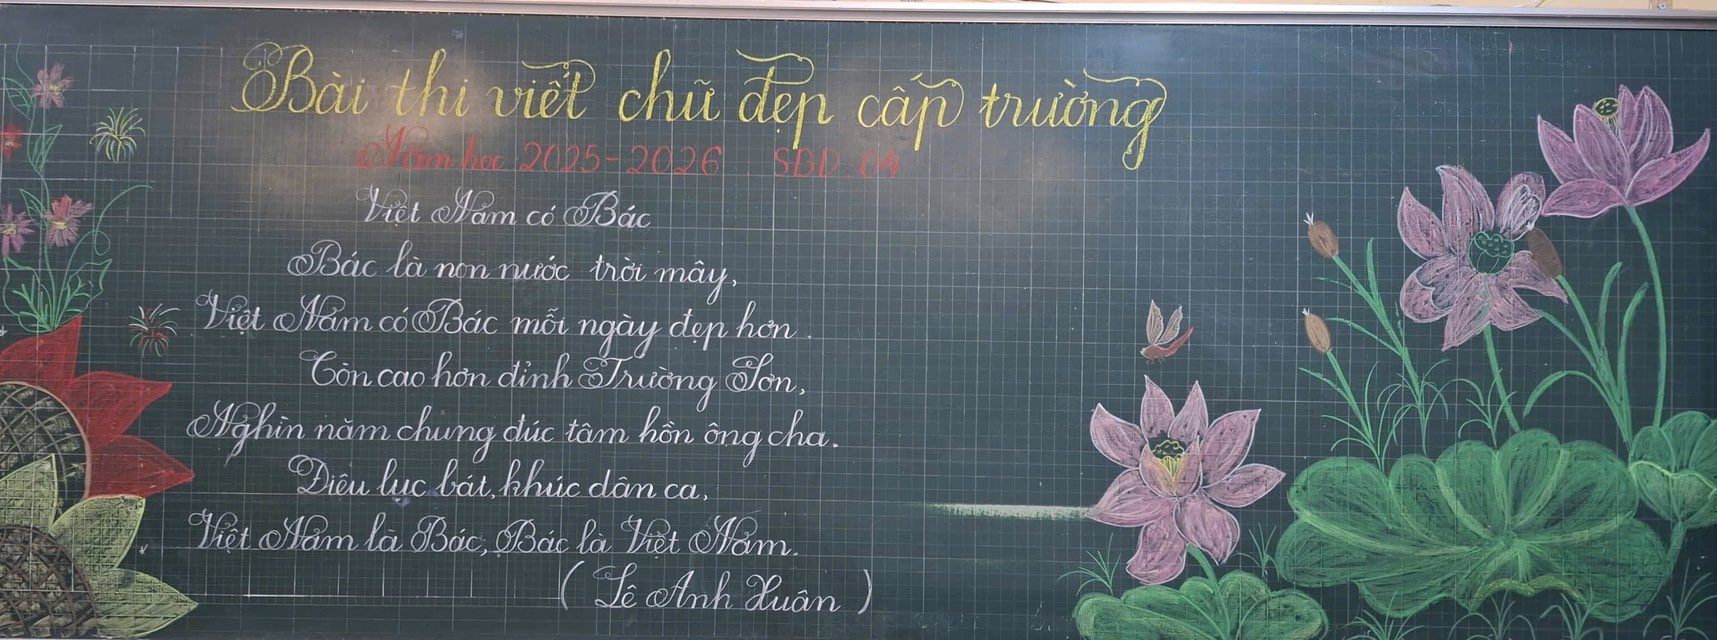 Bài thi viết chữ đẹp cấp trường
Năm học 2025-2026. SBD: 04
Việt Nam có Bác
Bác là non nước trời mây,
Việt Nam có Bác mỗi ngày đẹp hơn.
Còn cao hơn đỉnh Trường Sơn,
Nghìn năm chung đúc tâm hồn ông cha.
Điệu lục bát, khúc dân ca,
Việt Nam là Bác, Bác là Việt Nam.
( Lê Anh Xuân )